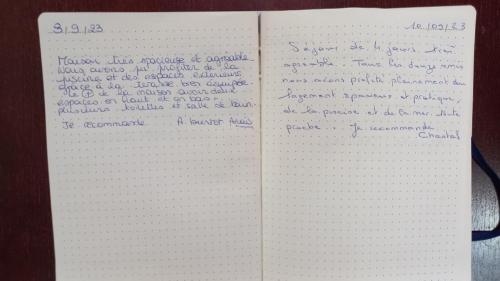 3/9/23
Maison très spacieuse et agréable
Nous avons pu profiter de la
piscine et des espaces extérieurs
grâce à la terrasse bien équipée
le (+) de la maison avoir deux
espaces en haut et en bas.
plusieurs toilettes et salle de bain.
Je recommande A.
10/09/23
Séjour de 4 jours bien
agréable. Tous les douze amis
nous avons profité pleinement du
logement spacieux et pratique,
de la piscine et de la mer
proche.. Je recommande
Chantal